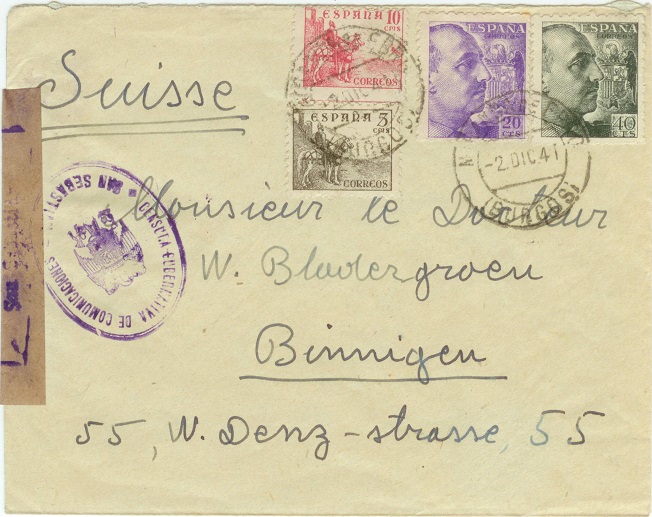 ESPAÑA 10
CTS
CORREOS
ESPAÑA 5
CTS
CORREOS
ESPAÑA
CORREOS
20
CTS
ESPAÑA
CORREOS
40
CTS
-2.DIC 41
(BURGOS)
Suisse
CENSURA GUBERNATIVA DE COMUNICACIONES
SAN SEBASTIAN
Monsieur le Docteur
W. Bladergroen
Binnigen
55, W. Denz-strasse, 55